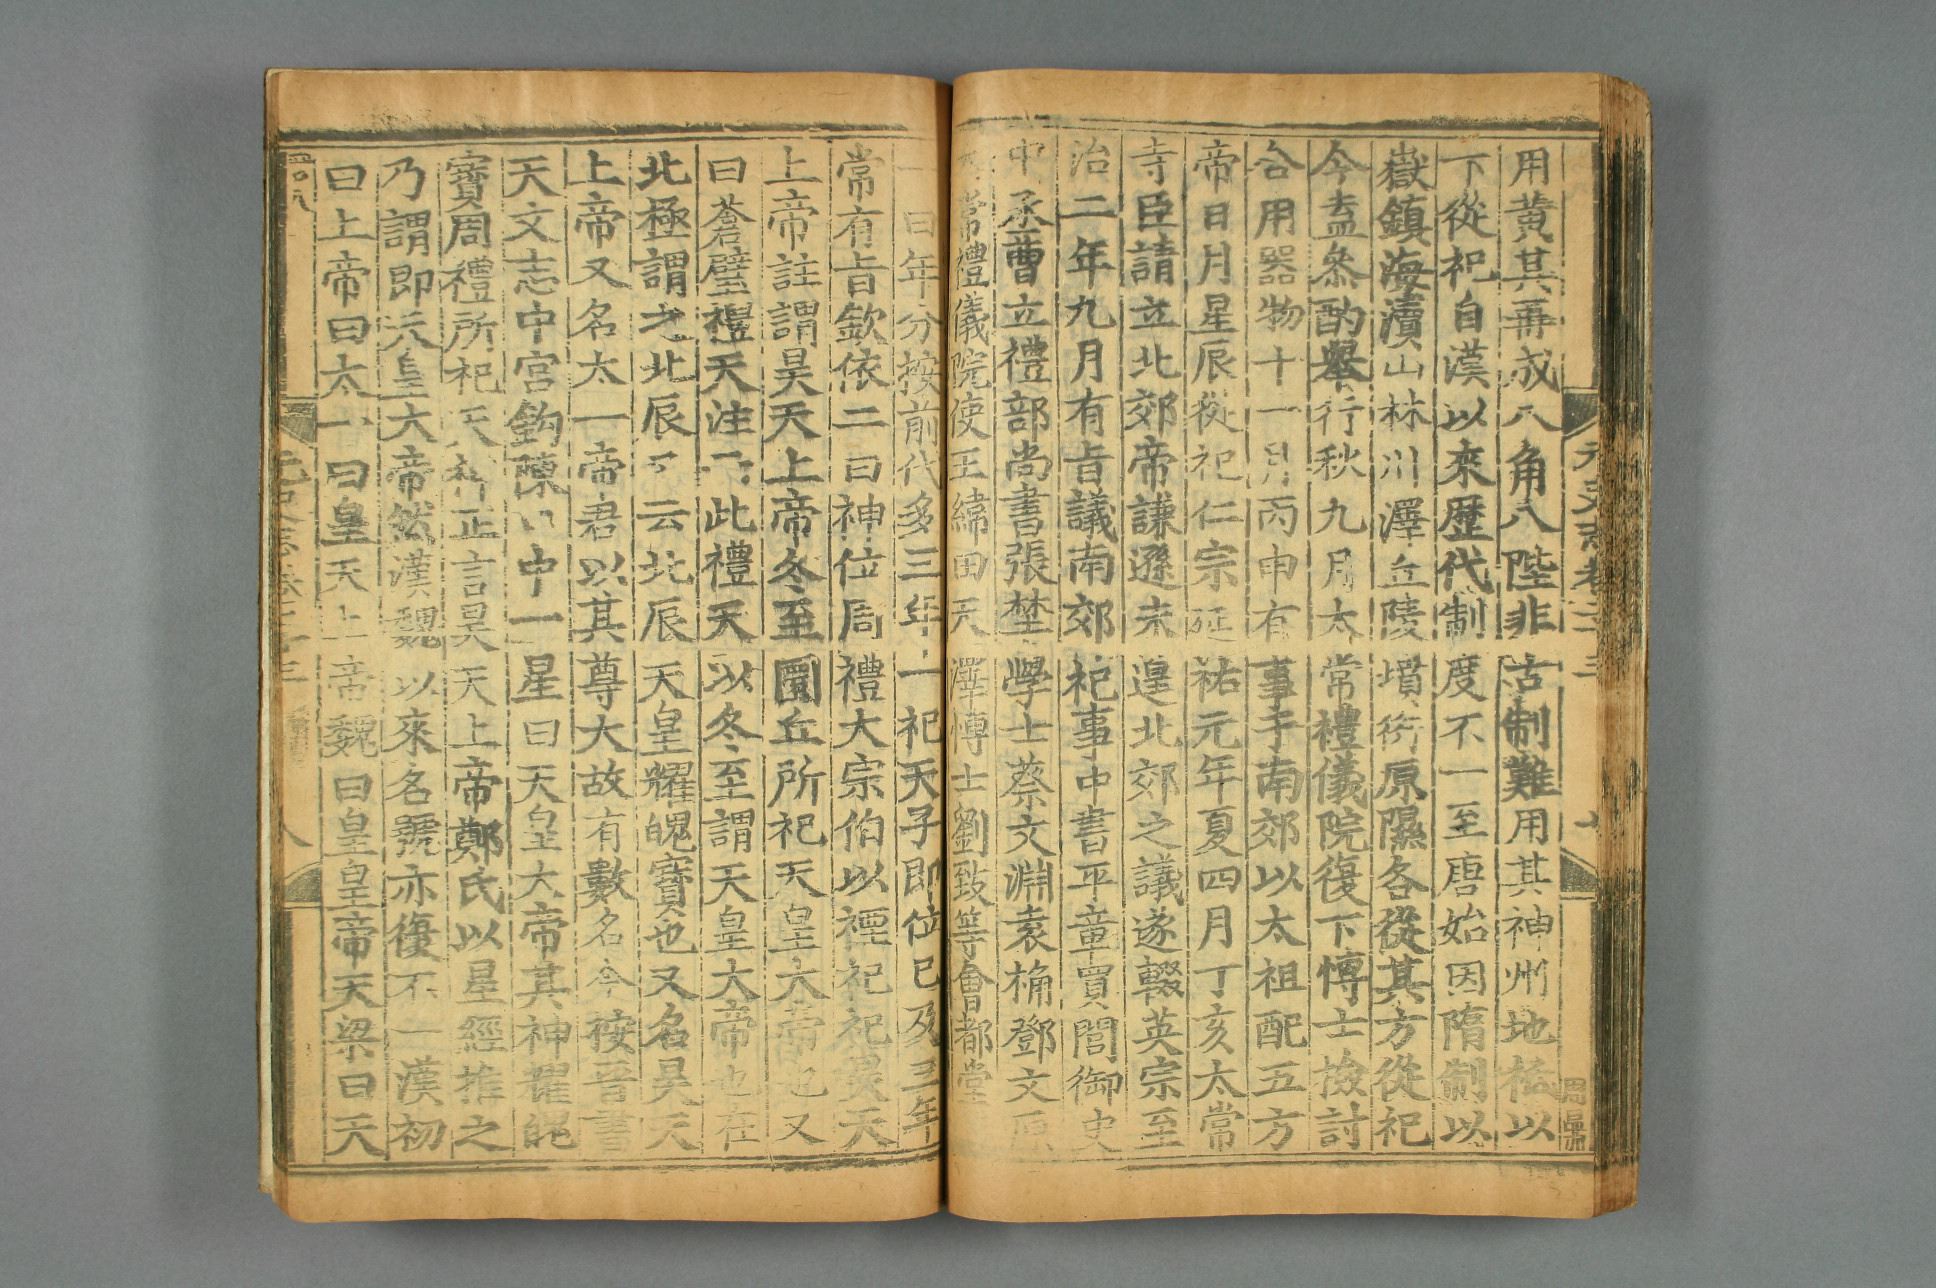 用黃其再成八角八陛非古制難用其神州地祇以
下從祀自漢以來歷代制度不一至唐始因隋制以
嶽鎮海瀆山林川澤丘陵墳衍原隰各從其方從祀
今盍參酌舉行秋九月太常禮儀院復下博士檢討
合用器物十一月丙申有事于南郊以太祖配五方
帝日月星辰從祀仁宗延祐元年夏四月丁亥太常
寺臣請立北郊帝謙遜未遑北郊之議遂輟英宗至
治二年九月有旨議南郊祀事中書平章買閭御史
中丞曹立禮部尚書張埜學士蔡文淵袁桷鄧文原
常禮儀院使王緯田天澤博士劉致等會都堂
一曰年分按前代多三年一祀天子即位已及三年
常有旨欽依二曰神位周禮大宗伯以禋祀祀昊天
上帝註謂昊天上帝冬至圜丘所祀天皇大帝也又
曰蒼璧禮天注 此禮天以冬至謂天皇大帝也在
北極謂之北辰 云北辰天皇耀魄寶也又名昊天
上帝又名太一帝君以其尊大故有數名今按晉書
天文志中宮鈎陳口中一星曰天皇大帝其神耀魄
寶周禮所祀天神正言昊天上帝鄭氏以星經推之
乃謂即天皇大帝然漢魏以來名號亦復不一漢初
曰上帝曰太一曰皇天上帝魏曰皇皇帝天梁曰天
元史志卷二十三
七
元史志卷二十三
八